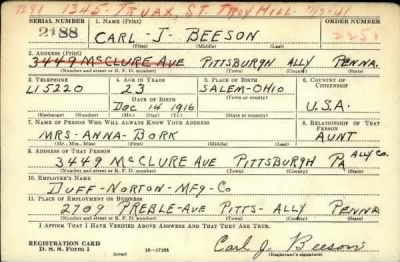 1345 - TRIAX ST. TROY HILL -
SERIAL NUMBER 1. NAME (Print) ORDER NUMBER
2188 CARL - J - BEESON 2251
(First) (Middle) (Last)
2. ADDRESS (Print)
3449 McCLURE AVE PITTSBURGH ALLY PENNA.
(Number and street or R. F. D. number) (Town) (County) (State)
3. TELEPHONE 4. AGE IN YEARS 5. PLACE OF BIRTH 6. COUNTRY OF CITIZENSHIP
LI5220 23 SALEM-OHIO
DATE OF BIRTH (Town or county)
DEC 14 1916 U.S.A.
(Exchange) (Number) (Mo.) (Day) (Yr.) (State or country)
7. NAME OF PERSON WHO WILL ALWAYS KNOW YOUR ADDRESS 8. RELATIONSHIP OF THAT PERSON
MRS-ANNA-BORK AUNT
(Mr., Mrs., Miss) (First) (Middle) (Last)
9. ADDRESS OF THAT PERSON
3449 McCLURE AVE PITTSBURGH PA ALLY CO.
(Number and street or R. F. D. number) (Town) (County) (State)
10. EMPLOYER'S NAME
DUFF-NORTON-MFG-CO
11. PLACE OF EMPLOYMENT OR BUSINESS
2709 PREBLE-AVE PITTS- ALLY PENNA
(Number and street or R. F. D. number) (Town) (County) (State)
I AFFIRM THAT I HAVE VERIFIED ABOVE ANSWERS AND THAT THEY ARE TRUE.
REGISTRATION CARD
D. S. S. Form 1 16-17105 Carl J. Beeson
(over) (Registrant's signature)